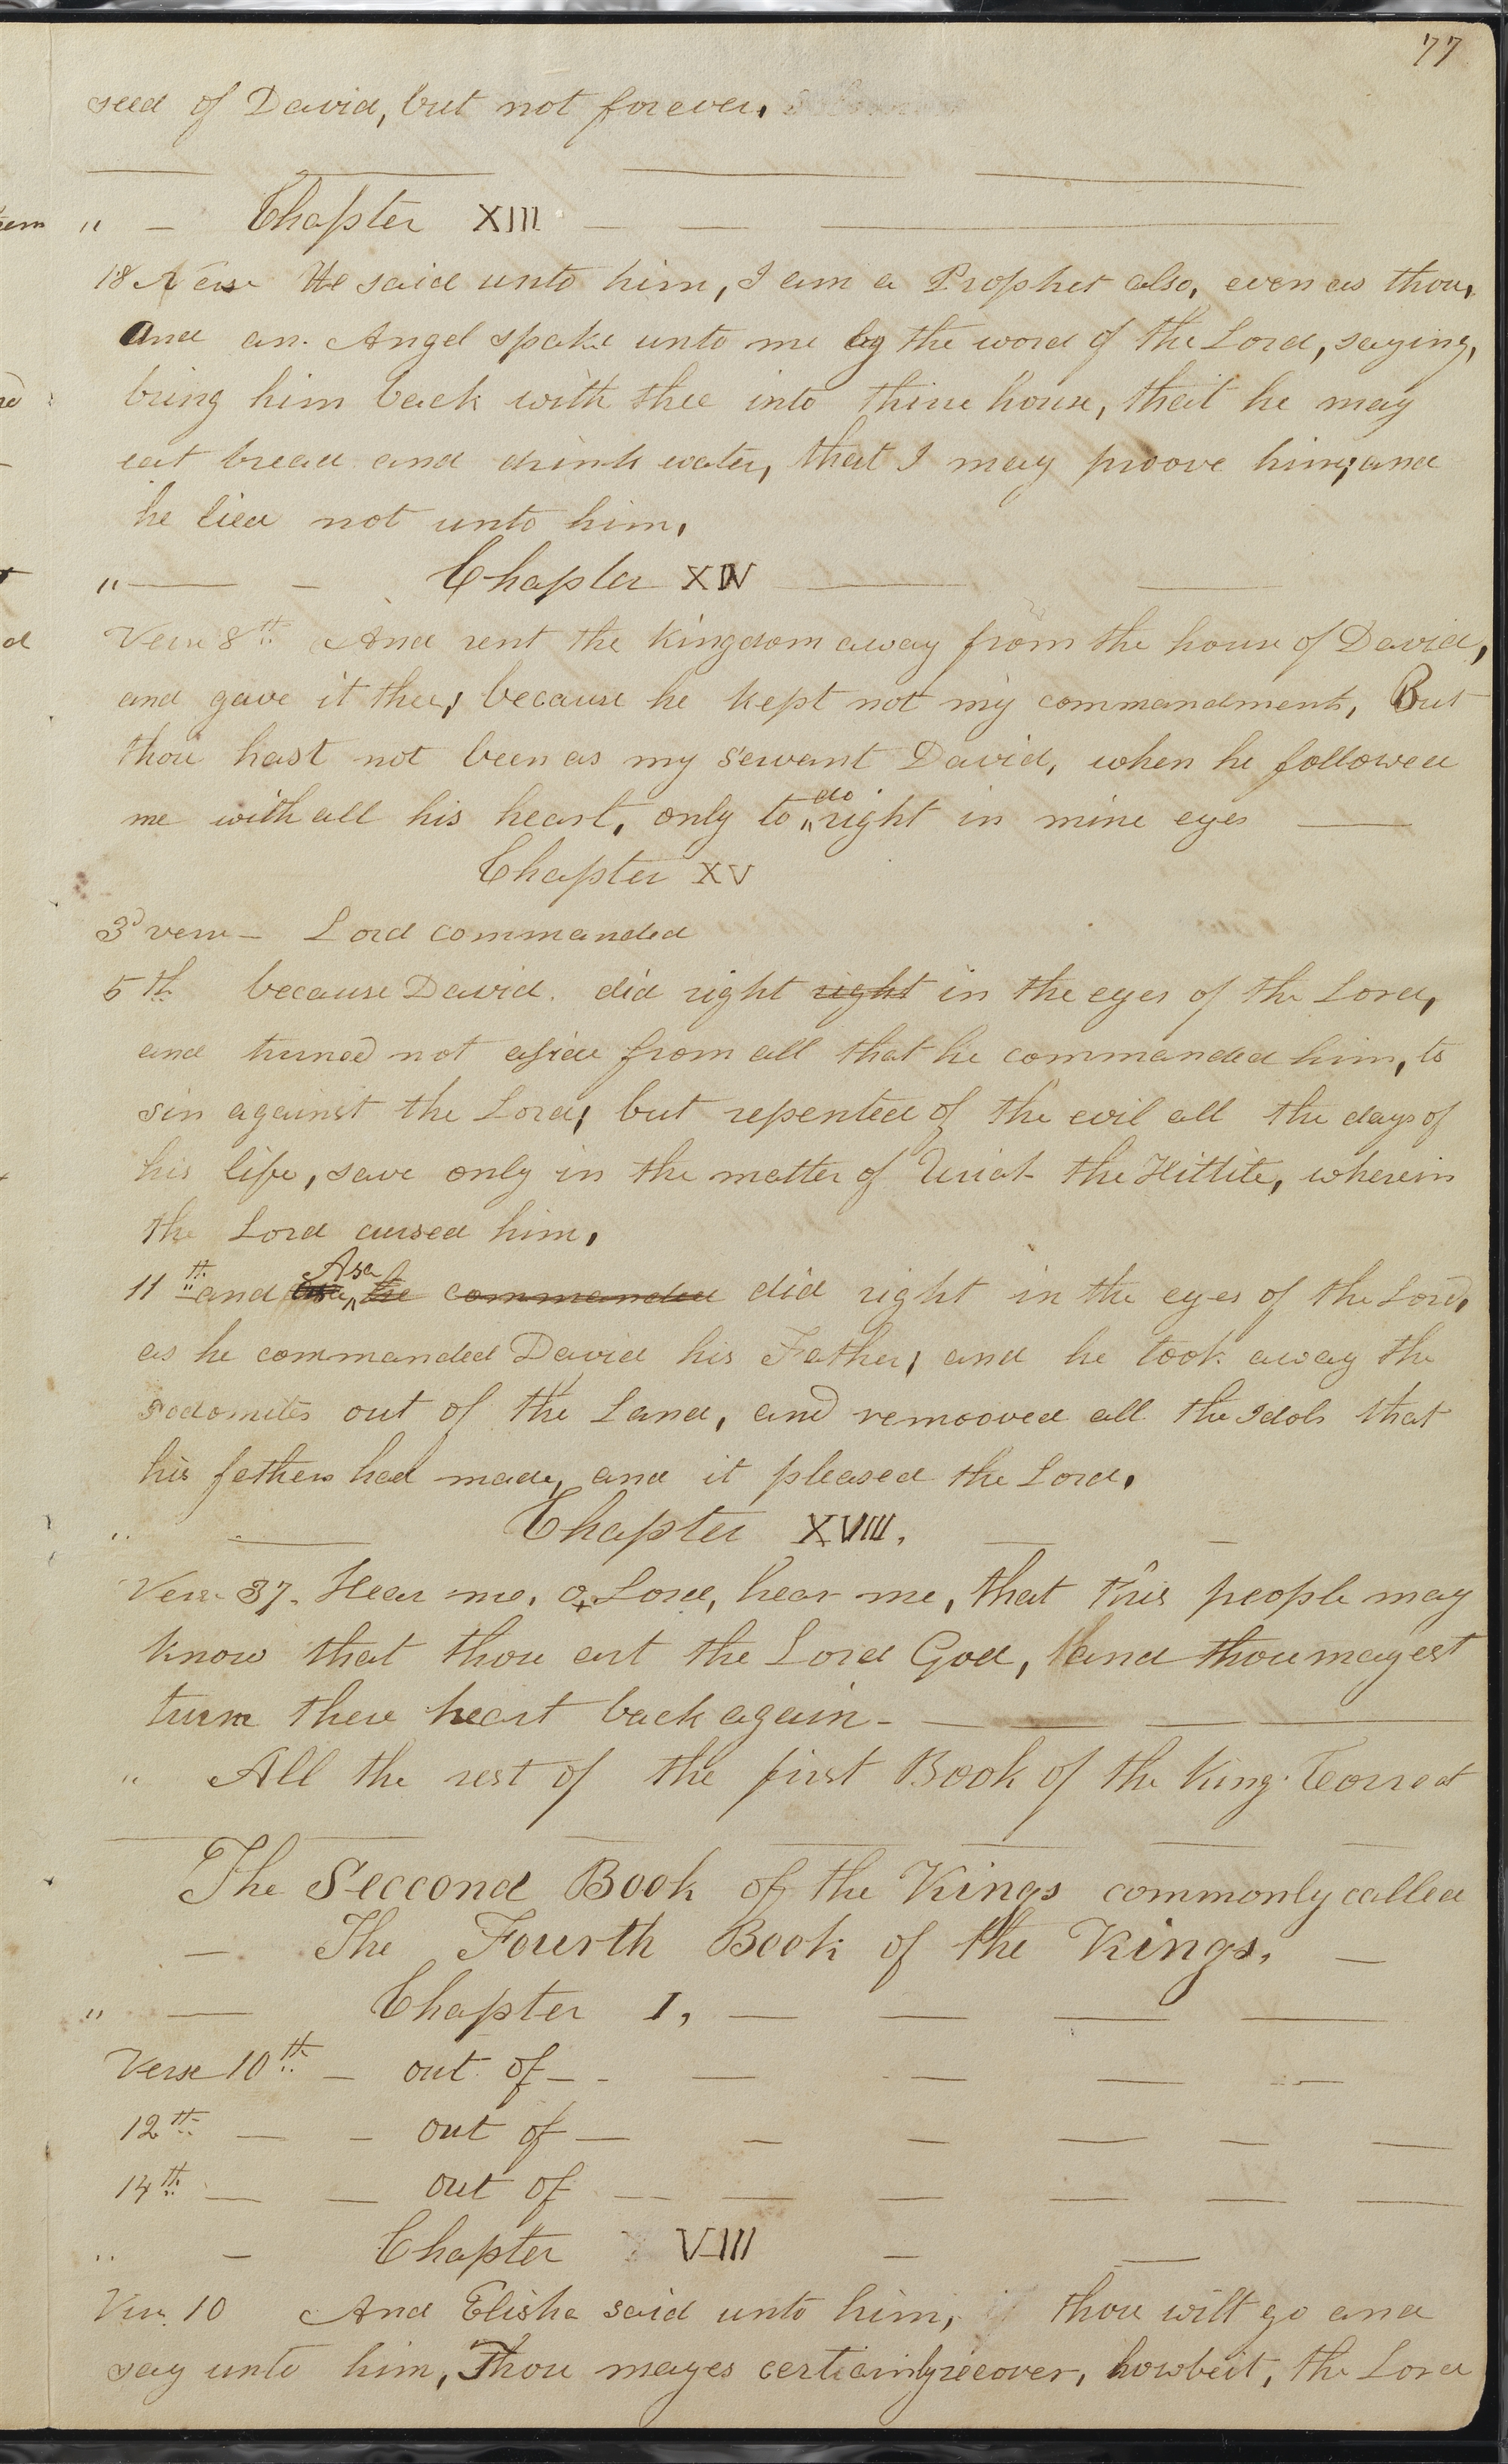 77
seed of David, but not forever.
" — Chapter XIII — —
18 Verse He said unto him, I am a Prophet also, even as thou,
And an Angel spake unto me by the word of the Lord, saying,
bring him back with thee into thine house, that he may
eat bread and drink water, that I may proove him; and
he lied not unto him.
" — — Chapter XIV —
Verse 8th And rent the kingdom away from the house of David,
and gave it thee, because he kept not my commandments, But
thou hast not been as my servant David, when he followed
me with all his heart, only to do right in mine eyes —
Chapter XV
3d verse — Lord commanded
5th because David did right right in the eyes of the Lord,
and turned not aside from all that he commanded him, to
sin against the Lord, but repented of the evil all the days of
his life, save only in the matter of Uriah the Hittite, wherein
the Lord cursed him.
11th and Asa he commanded did right in the eyes of the Lord,
as he commanded David his Father, and he took away the
sodomites out of the Land, and remooved all the Idols that
his fathers had made, and it pleased the Lord.
" — Chapter XVIII. — —
Verse 37. Hear me, O Lord, hear me, that this people may
know that thou art the Lord God, and thou mayest
turn there heart back again —
" All the rest of the first Book of the Kings Correct
The Seccond Book of the Kings commonly called
— The Fourth Book of the Kings. —
" — Chapter I, — — — —
Verse 10th — out of — —
12th — — out of —
14th — — out of —
" — Chapter VIII — —
Vers. 10 And Elisha said unto him, thou wilt go and
say unto him, Thou mayes certainly recover, howbeit, the Lord